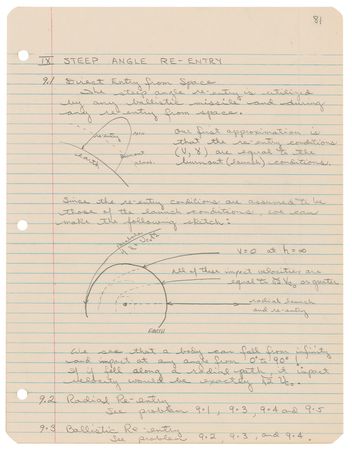 81
IX STEEP ANGLE RE-ENTRY
9.1 Direct Entry from Space
The steep angle re-entry is utilized
by any ballistic missile and during
any re-entry from space.
re-entry
earth
Our first approximation is
that the re-entry conditions
(V, γ) are equal to the
burnout (launch) conditions.
Since the re-entry conditions are assumed to be
those of the launch conditions, we can
make the following sketch:
V=0 at h=∞
All of these impact velocities are
equal to √2 Vc0 or greater
radial launch
and re-entry
EARTH
We see that a body can fall from infinity
and impact at any angle from 0° to 90°!
If it fell along a radial path, it's impact
velocity would be exactly √2 Vc.
9.2 Radial Re-entry
See problem 9.1, 9.3, 9.4 and 9.5
9.3 Ballistic Re-entry
See problem 9.2 9.3, and 9.4.